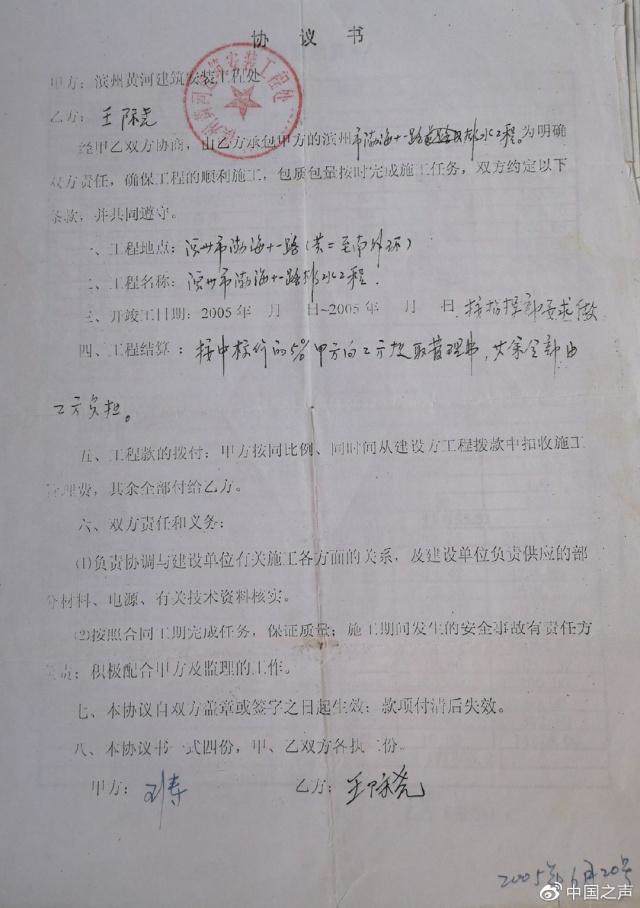 协 议 书
甲方：滨州黄河建筑安装工程处
乙方：王际尧
经甲乙双方协商，由乙方承包甲方的滨州市渤海十一路道路及排水工程。为明确
双方责任，确保工程的顺利施工，包质包量按时完成施工任务，双方约定以下
条款，并共同遵守。
一、工程地点：滨州市渤海十一路（黄二至南外环）
二、工程名称：滨州市渤海十一路排水工程.
三、开竣工日期：2005年 月 日~2005年 月 日.按指挥部要求做
四、工程结算：按中标价的5%甲方向乙方提取管理费，其余全部由
乙方负担。
五、工程款的拨付：甲方按同比例、同时间从建设方工程拨款中扣收施工
管理费，其余全部付给乙方。
六、双方责任和义务：
⑴负责协调与建设单位有关施工各方面的关系，及建设单位负责供应的部
分材料、电源、有关技术资料核实。
⑵按照合同工期完成任务，保证质量；施工期间发生的安全事故有责任方
负责；积极配合甲方及监理的工作。
七、本协议自双方盖章或签字之日起生效；款项付清后失效。
八、本协议书一式四份，甲、乙双方各执二份。
甲方： 乙方：王际尧
2005年6月20号
@中国之声